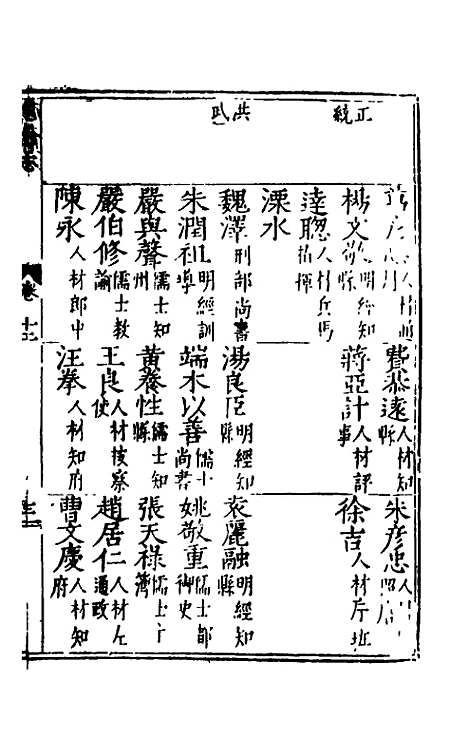 正統
洪武
費恭遠人材知縣
朱彥忠人
楊文敬明經知縣
蔣亞計人材評事
徐吉人材斤班
達聰人材兵馬指揮
溧水
魏澤刑部尚書
湯良臣明經知縣
袁麗融明經知縣
朱潤祖明經訓導
端木以善儒士尚書
姚敬重儒士都御史
嚴與聲儒士知州
黃養性儒士知縣
張天祿儒士
嚴伯修儒士教諭
王良人材按察使
趙居仁人材左通政
陳永人材郎中
汪拳人材知府
曹文慶人材知府
卷十